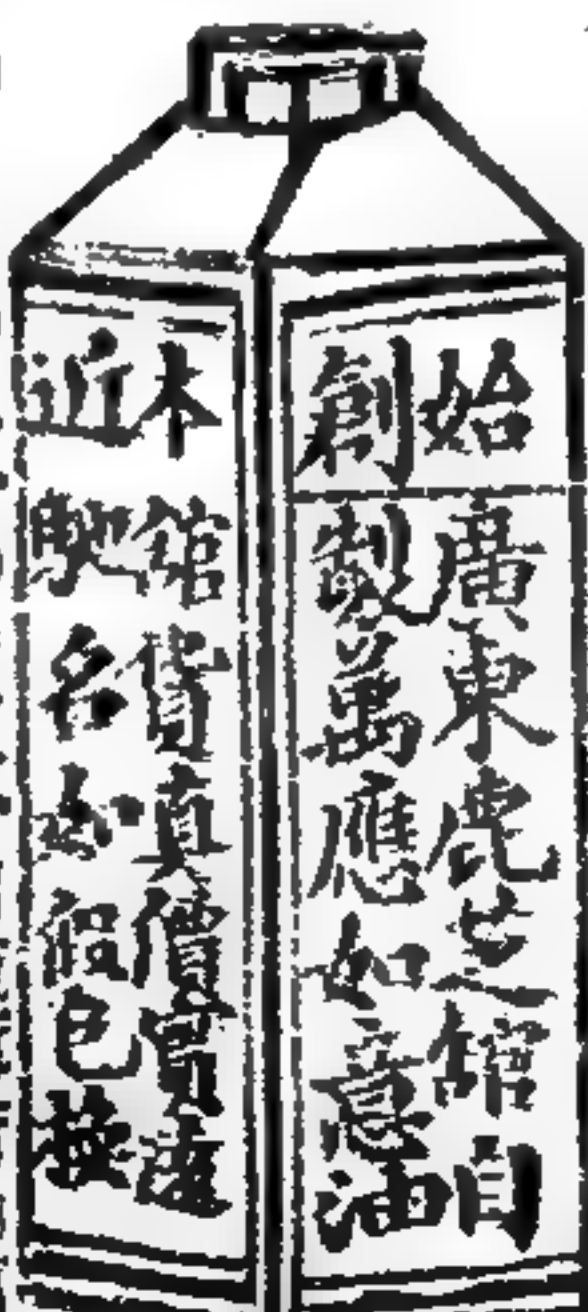 始創
廣東鹿芝館自
製萬應如意油
本館貨真價實遠
近馳名如假包換